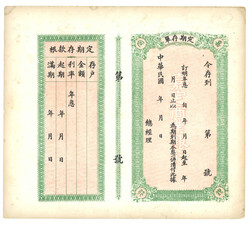 定期存單
今存到
第 號
訂明年息 自 年 月 日起至
年 月 日止以
中華民國 年 月 日
總經理
第 號
定期存款根
存戶
金額
利率 年息
起期 年 月 日
滿期 年 月 日